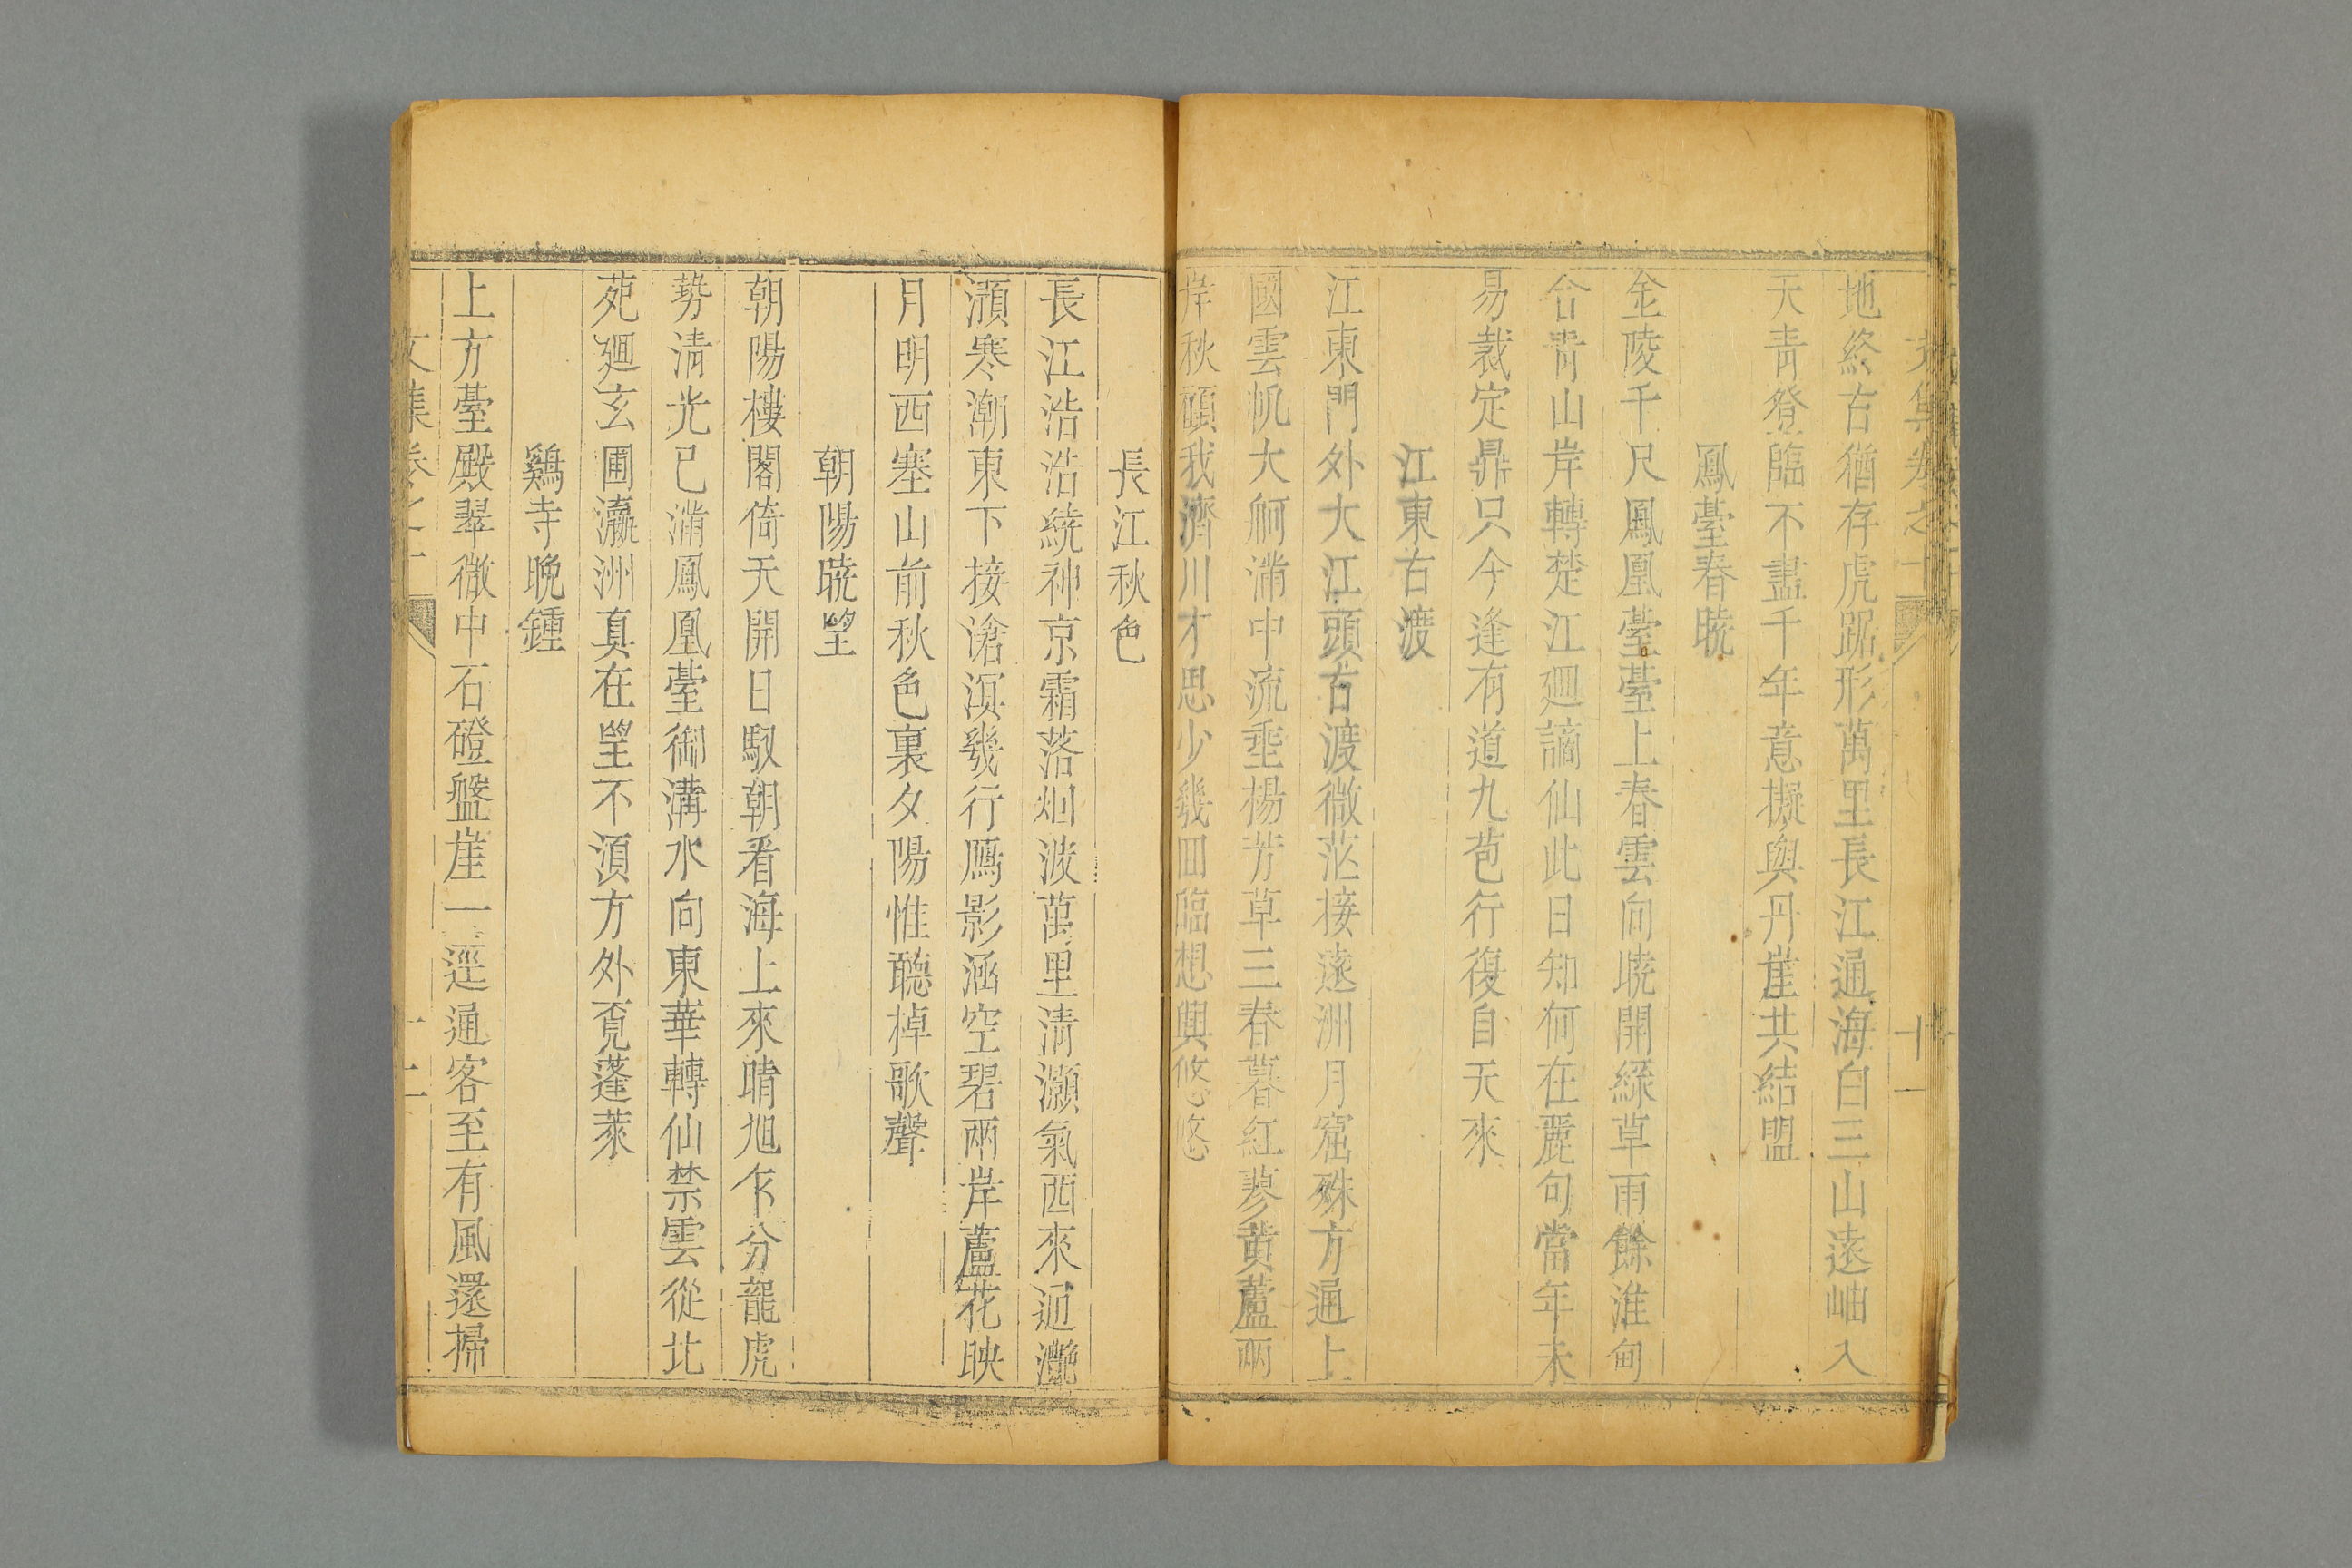 文集卷之十 十一
地終古猶存虎踞形萬里長江通海白三山遠岫入
天青登臨不盡千年意擬與丹崖共結盟
鳳臺春曉
金陵千尺鳳凰臺臺上春雲向曉開綠草雨餘淮甸
合青山岸轉楚江迴謫仙此日知何在麗句當年未
易裁定鼎只今逢有道九苞行復自天來
江東古渡
江東門外大江頭古渡微茫接遠洲月窟殊方通上
國雲帆大舸滿中流垂楊芳草三春暮紅蓼黃蘆兩
岸秋顧我濟川才思少幾回臨想興悠悠
長江秋色
長江浩浩繞神京霜落烟波萬里清灝氣西來迎灔
澦寒潮東下接滄溟幾行鴈影涵空碧兩岸蘆花映
月明西塞山前秋色裏夕陽惟聽棹歌聲
朝陽曉望
朝陽樓閣倚天開日馭朝看海上來晴旭乍分龍虎
勢清光已滿鳳凰臺御溝水向東華轉仙禁雲從北
苑迴玄圃瀛洲真在望不須方外覓蓬萊
鷄寺晚鍾
上方臺殿翠微中石磴盤崖一逕通客至有風還掃
文集卷之十 十二